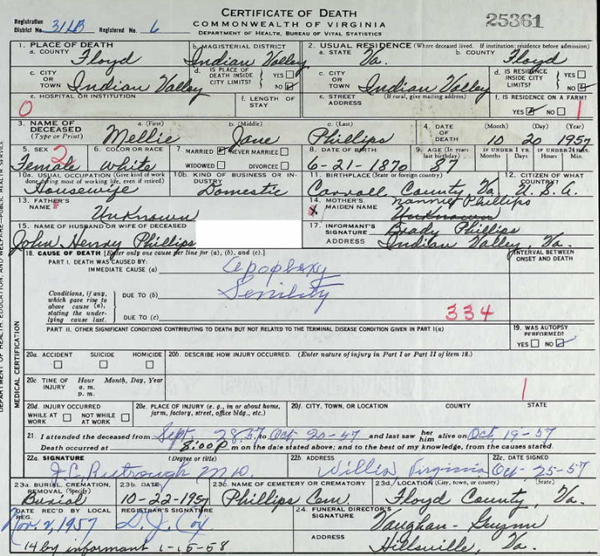 CERTIFICATE OF DEATH
COMMONWEALTH OF VIRGINIA
DEPARTMENT OF HEALTH, BUREAU OF VITAL STATISTICS
25361
Registration District No. 31LB Registered No. 6
1. PLACE OF DEATH
a. COUNTY Floyd b. MAGISTERIAL DISTRICT Indian Valley
2. USUAL RESIDENCE (Where deceased lived. If institution: residence before admission)
a. STATE Va. b. COUNTY Floyd
c. CITY OR TOWN Indian Valley d. IS PLACE OF DEATH INSIDE CITY LIMITS? YES NO
c. CITY OR TOWN Indian Valley d. IS RESIDENCE INSIDE CITY LIMITS? YES NO
e. HOSPITAL OR INSTITUTION f. LENGTH OF STAY
e. STREET ADDRESS (If rural, give mailing address) f. IS RESIDENCE ON A FARM? YES NO
0 1
3. NAME OF DECEASED (Type or Print) a. (First) Mellie b. (Middle) Jane c. (Last) Phillips
4. DATE OF DEATH (Month) 10 (Day) 20 (Year) 1957
5. SEX Female 2 6. COLOR OR RACE White 7. MARRIED NEVER MARRIED WIDOWED DIVORCED
8. DATE OF BIRTH 6-21-1870 9. AGE (In years last birthday) 87 IF UNDER 1 YEAR Months Days IF UNDER 24 HRS. Hours Min.
10a. USUAL OCCUPATION (Give kind of work done during most of working life, even if retired) Housewife
10b. KIND OF BUSINESS OR INDUSTRY Domestic
11. BIRTHPLACE (State or foreign country) Carroll County Va.
12. CITIZEN OF WHAT COUNTRY? U.S.A.
13. FATHER'S NAME Unknown
14. MOTHER'S MAIDEN NAME Nannie Phillips Unknown
X
15. NAME OF HUSBAND OR WIFE OF DECEASED John Henry Phillips
17. INFORMANT'S SIGNATURE Brady Phillips
ADDRESS Indian Valley, Va.
18. CAUSE OF DEATH [Enter only one cause per line for (a), (b), and (c).] INTERVAL BETWEEN ONSET AND DEATH
PART I. DEATH WAS CAUSED BY:
IMMEDIATE CAUSE (a) Apoplexy
Conditions, if any, which gave rise to above cause (a), stating the underlying cause last.
DUE TO (b) Senility
DUE TO (c) 334
PART II. OTHER SIGNIFICANT CONDITIONS CONTRIBUTING TO DEATH BUT NOT RELATED TO THE TERMINAL DISEASE CONDITION GIVEN IN PART I(a)
19. WAS AUTOPSY PERFORMED? YES NO
MEDICAL CERTIFICATION
20a. ACCIDENT SUICIDE HOMICIDE 20b. DESCRIBE HOW INJURY OCCURRED. (Enter nature of injury in Part I or Part II of item 18.)
20c. TIME OF INJURY Hour a. m. p. m. Month, Day, Year
1
20d. INJURY OCCURRED WHILE AT WORK NOT WHILE AT WORK
20e. PLACE OF INJURY (e. g., in or about home, farm, factory, street, office bldg., etc.)
20f. CITY, TOWN, OR LOCATION COUNTY STATE
21. I attended the deceased from Sept. 28-57 to Oct-20-57 and last saw her him alive on Oct 19-57
Death occurred at 8:00 P m on the date stated above; and to the best of my knowledge, from the causes stated.
22a. SIGNATURE (Degree or title) 22b. ADDRESS 22c. DATE SIGNED
J.C. MD. Willis Virginia Oct-25-57
23a. BURIAL, CREMATION, REMOVAL (Specify) Burial 23b. DATE 10-22-1957
23c. NAME OF CEMETERY OR CREMATORY Phillips Cem
23d. LOCATION (City, town, or county) (State) Floyd County, Va.
DATE REC'D BY LOCAL REG. Nov. 2, 1957 REGISTRAR'S SIGNATURE D. J. Cox
24. FUNERAL DIRECTOR'S SIGNATURE Vaughan-Guynn
ADDRESS Hillsville, Va.
14 by informant 1-15-58